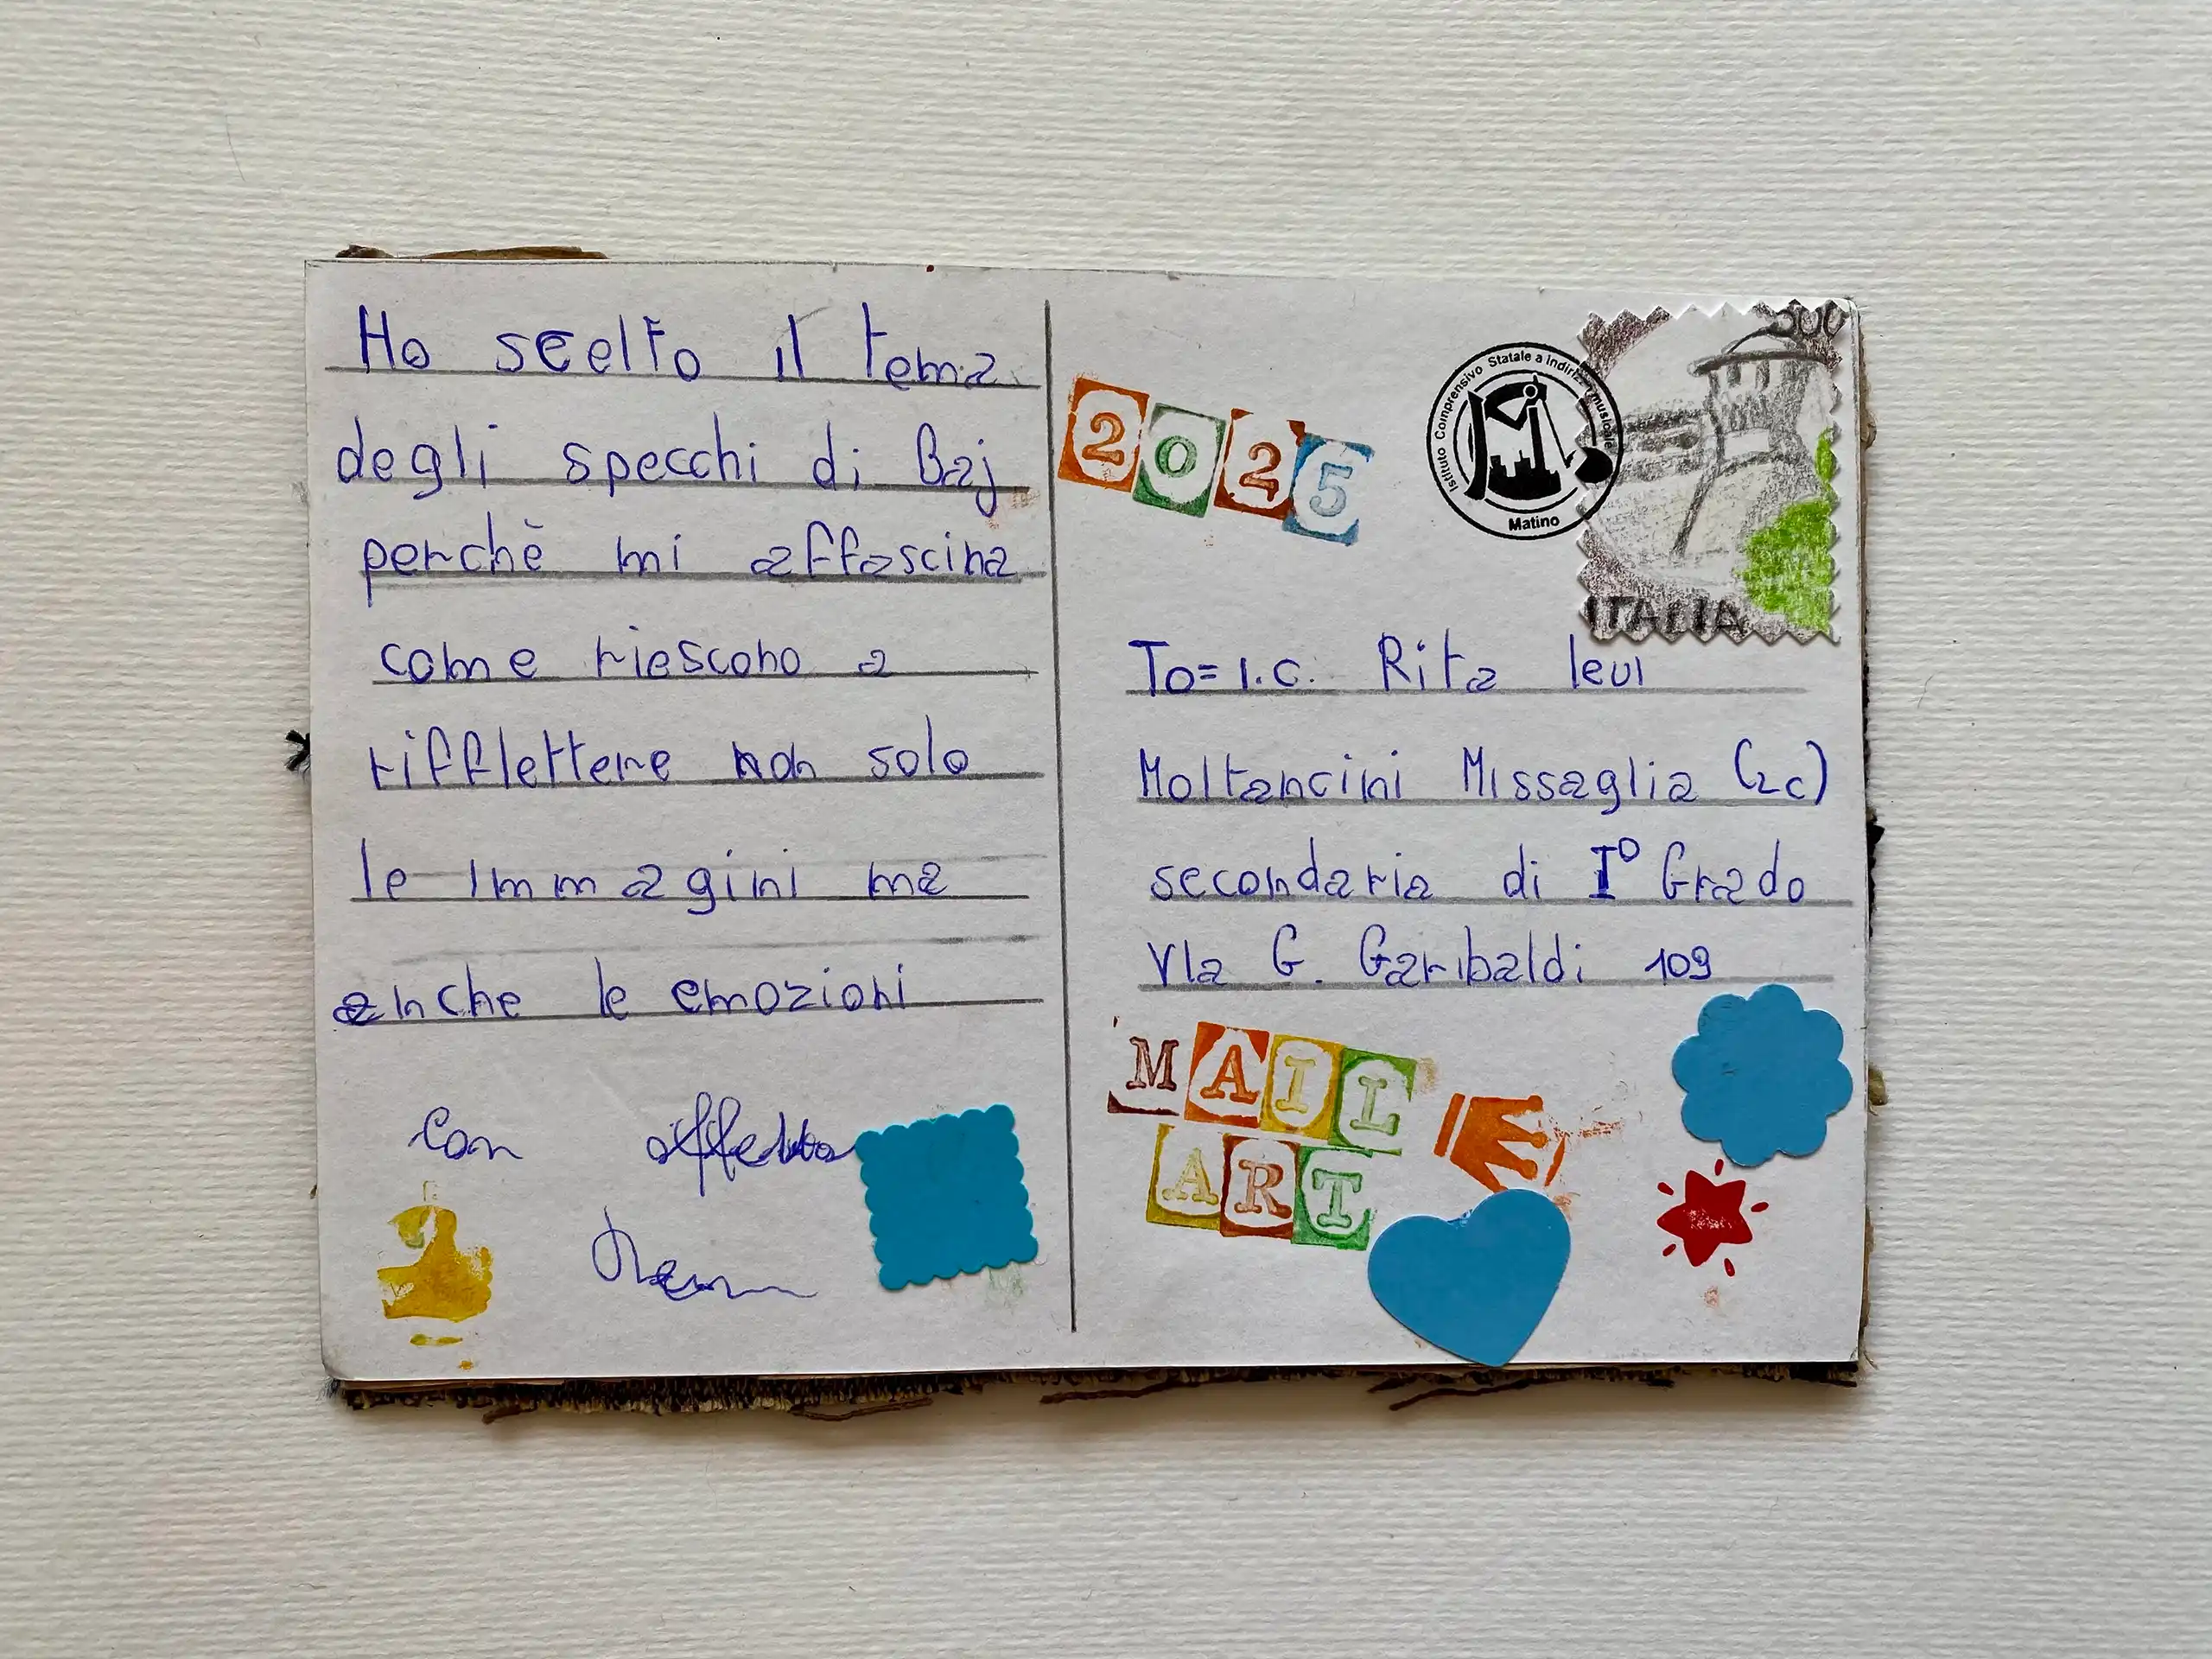 Ho scelto il tema
degli specchi di Baj
perchè mi affascina
come riescono a
rifflettere non solo
le immagini ma
anche le emozioni
con affetto
2025
Istituto Comprensivo Statale a Indirizzo musicale
Matino
500
ITALIA
To= I.C. Rita levi
Moltancini Missaglia (2c)
secondaria di I° Grado
Via G. Garibaldi 109
MAIL
ART